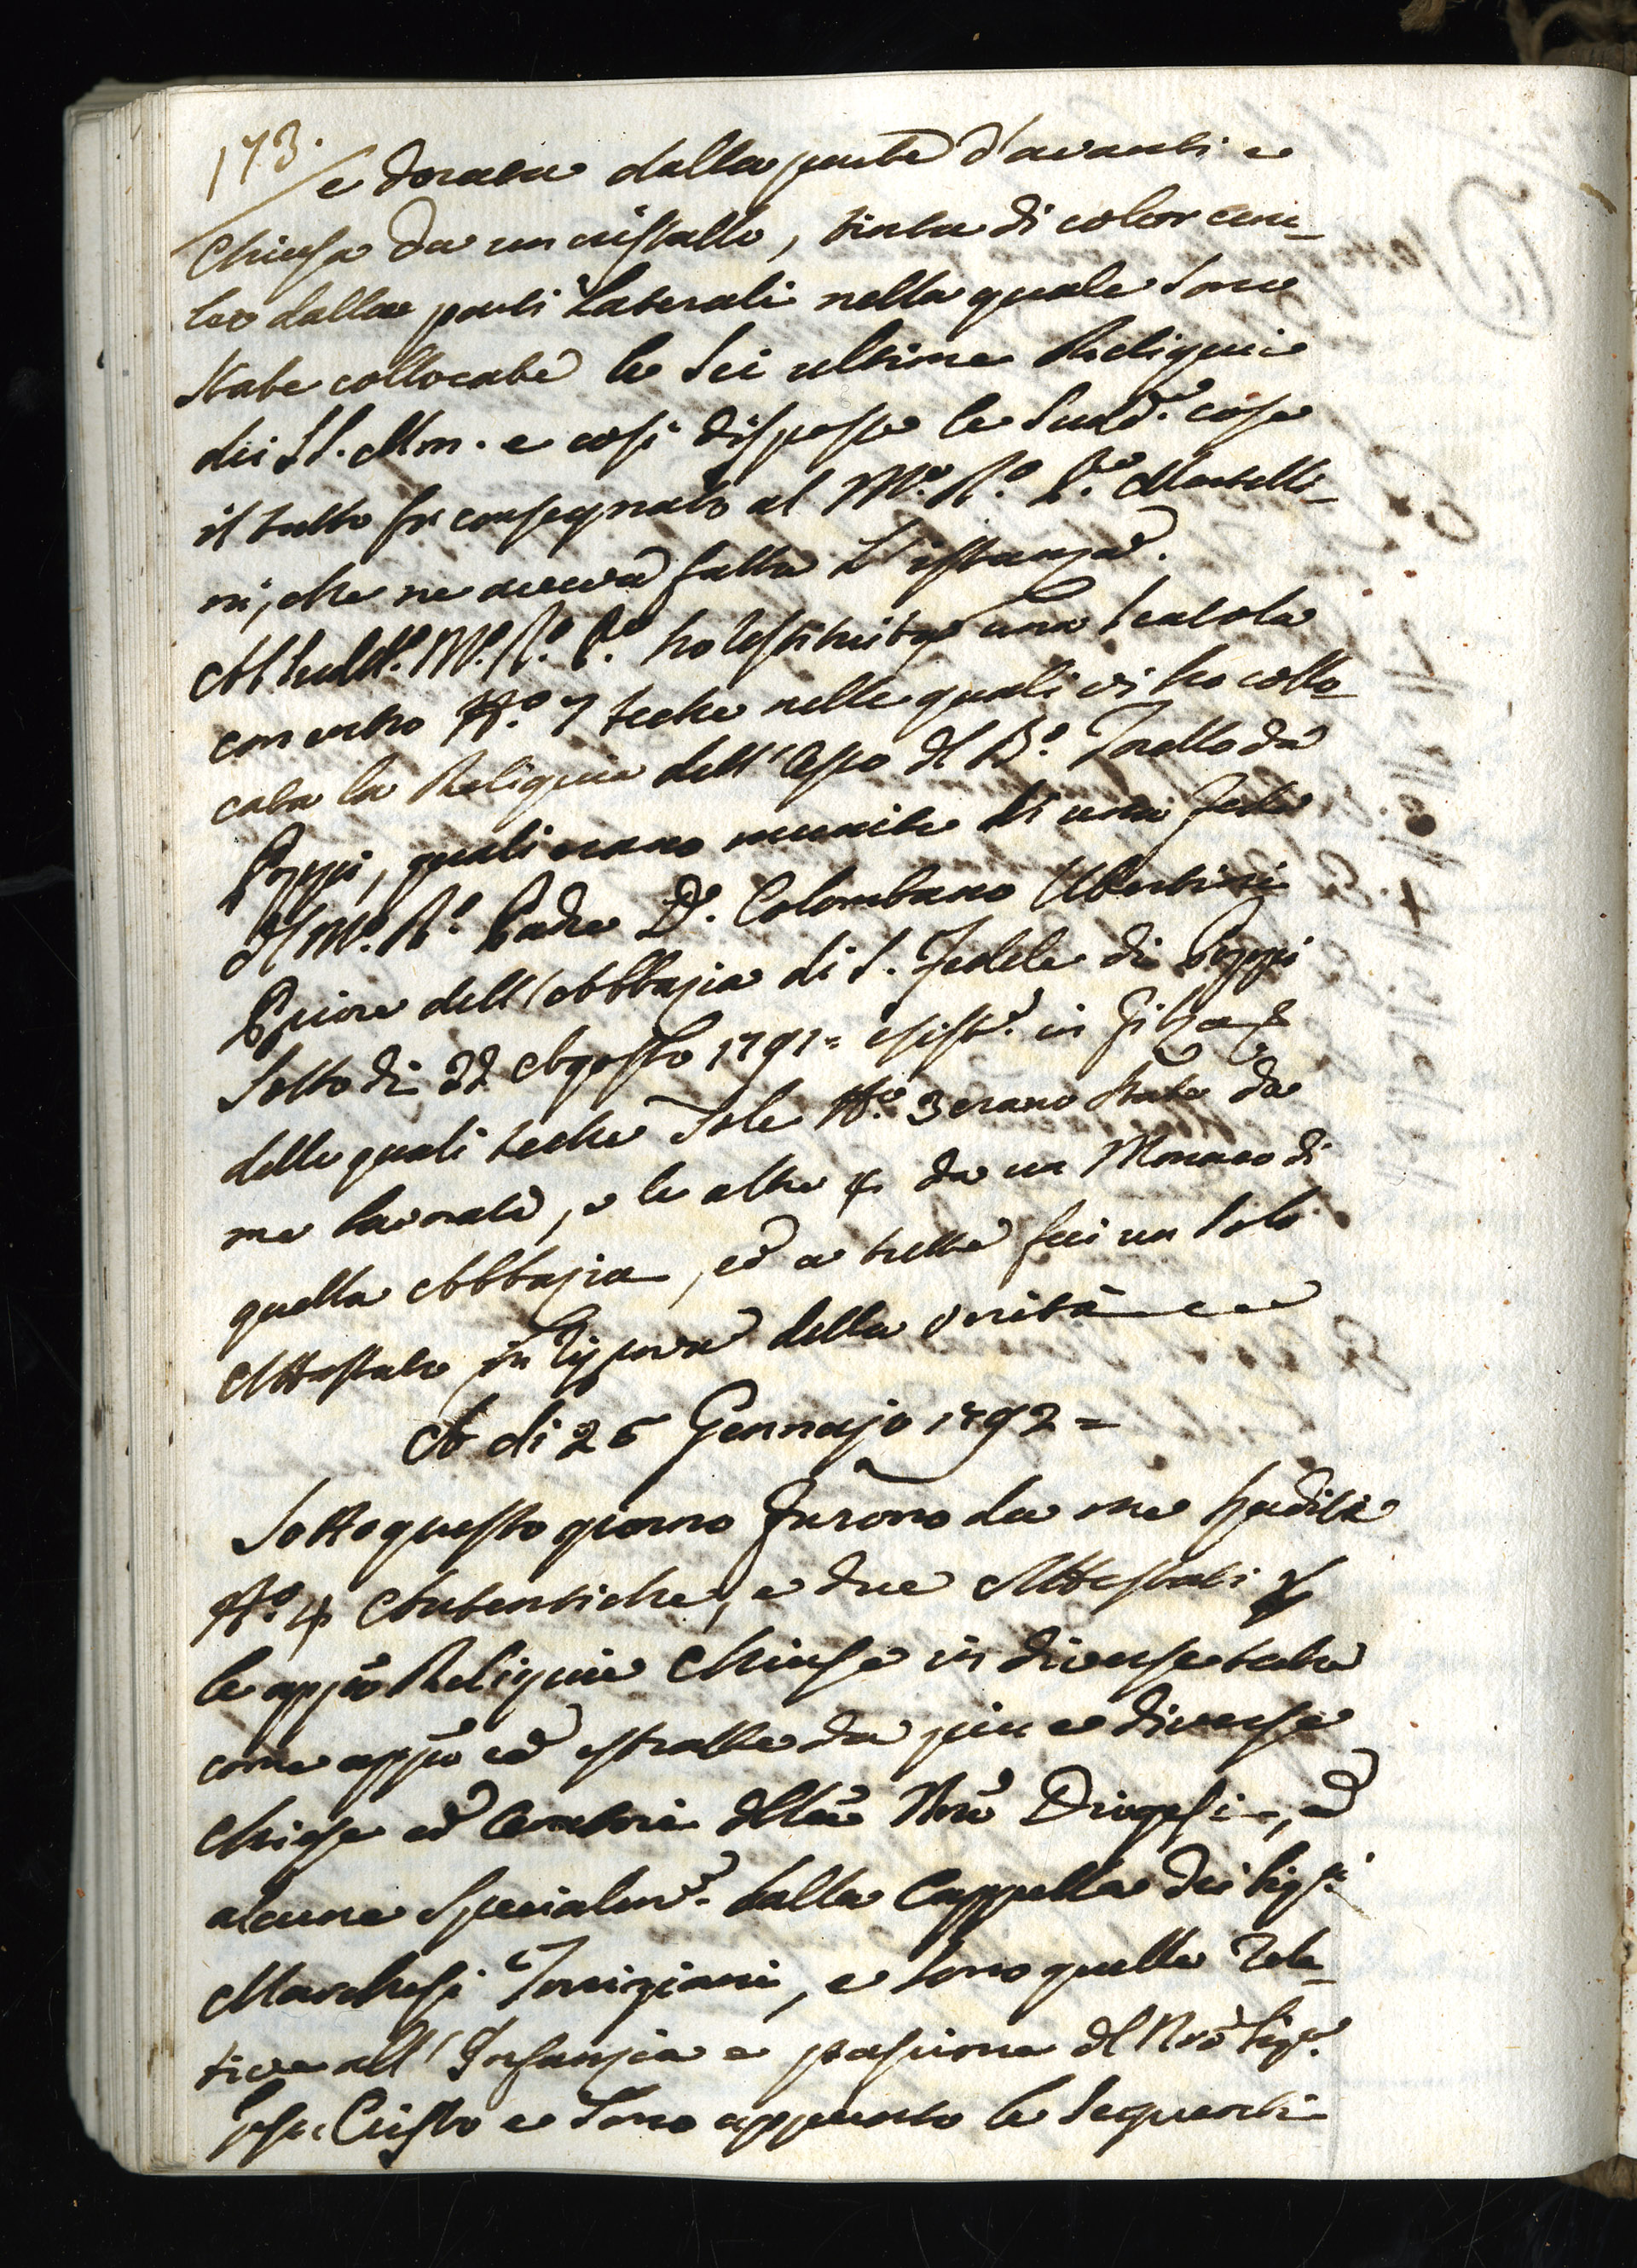 173.
e dorata dalla parte d'avanti e
Chiusa da un cristallo, tinta di color ceru-
leo dalle parti Laterali nella quale sono
State collocate le Sei ultime Reliquie
dei SS. Mm. e così disposte le Sudd.e cose
il tutto fu consegnato al M.o R.o P.e Martelli-
ni, che ne aveva fatta L'istanza.
Al sudd.o M.o R.o P.e ho restituito una scatola
con entro N.o 7 teche nelle quali vi ho collo-
cata la Reliquia dell'Osso del B.o Torello da
Poppi, quali erano munite di una fede
del M.o R.o Padre D. Colombano Ubertini
Priore dell'Abbazia di S. Fedele di Poppi
Sotto di 22 Agosto 1791= esist.e in Filza
delle quali teche Sole N.o 3 erano State da
me lavorate, e le altre 4 da un Monaco di
quella Abbazia, ed a tutte feci un Solo
Attestato in riprova della verità
A di 26 Gennajo 1792=
Sotto questo giorno furono da me spedite
N.o 4 Autentiche, e due Attestati p
le app.o Reliquie Chiuse in diverse teche
come app.o ed estratte da piu e diverse
Chiese ed Oratori della Nra Diogesi, ed
alcune Specialm.e dalla Cappella dei Sig.ri
Marchesi Torrigiani, e sono quelle Rela-
tive all'Infanzia e passione del Nro Sig.e
Gesu Cristo e Sono appunto le Seguenti